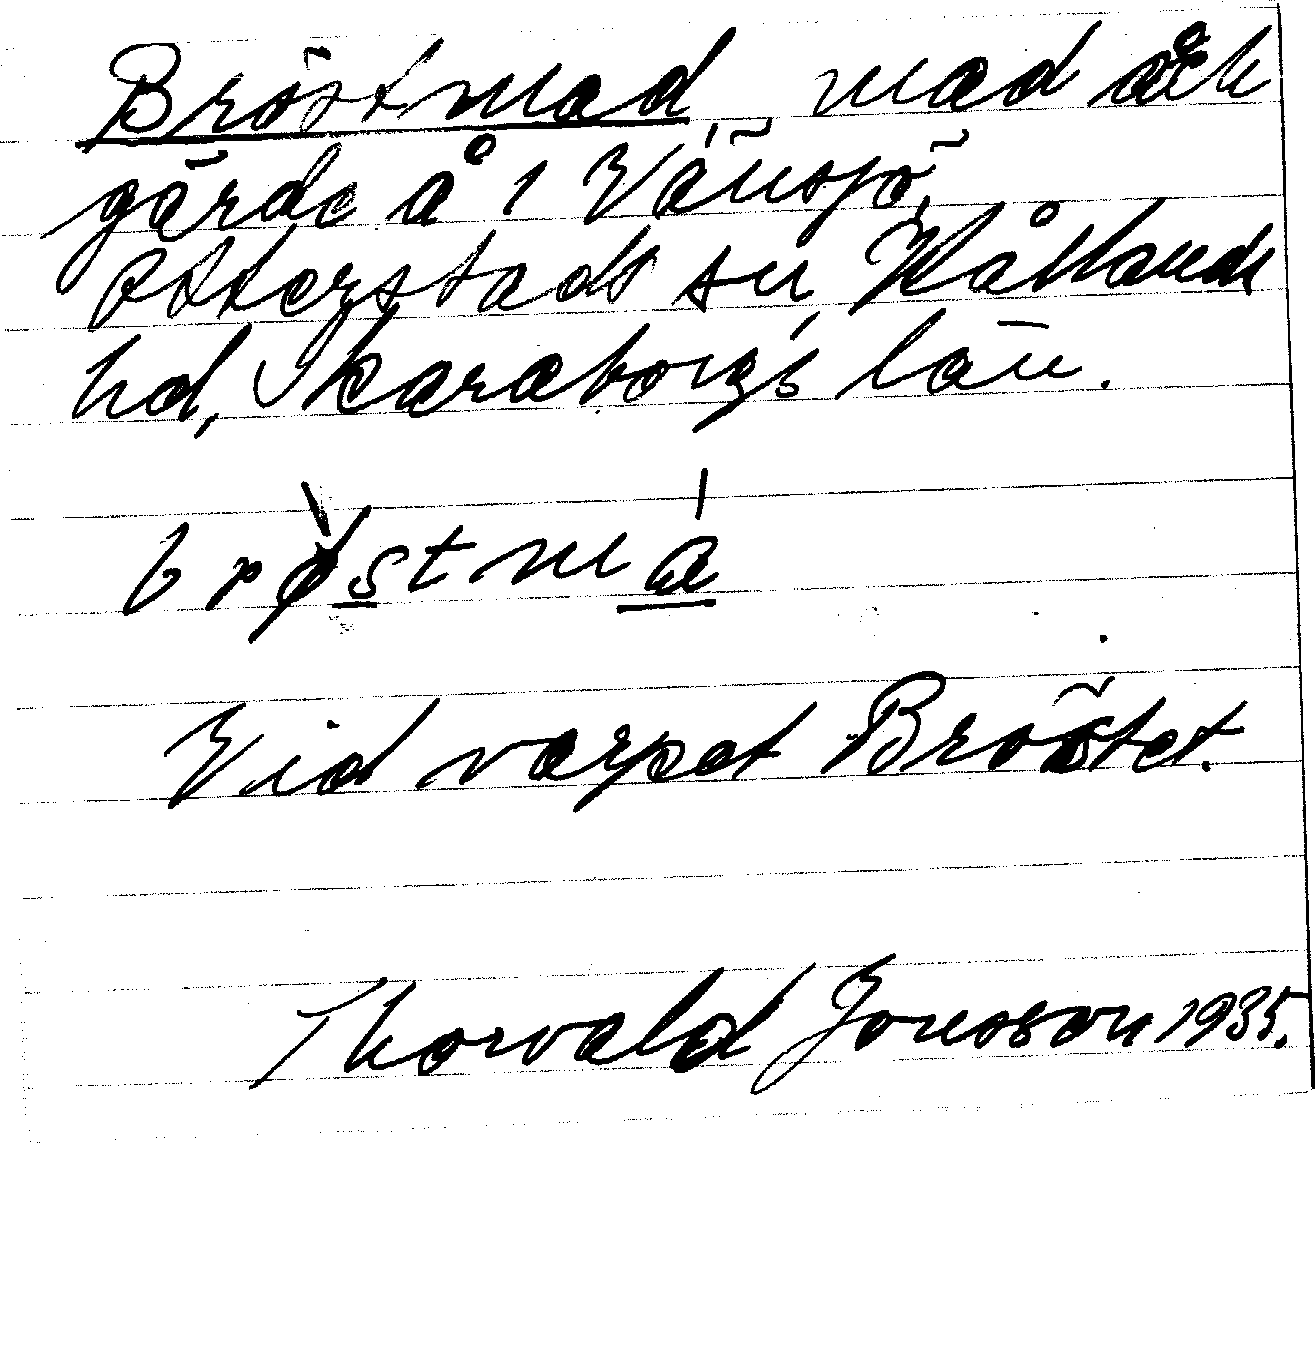 Bröstmad, mad åck
gärde å i Vänsjö,
Otterstads sn Kållands
hd, Skaraborgs län.
brøstma
Vid varpet Bröstet.
Thorvald Jonsson 1935.